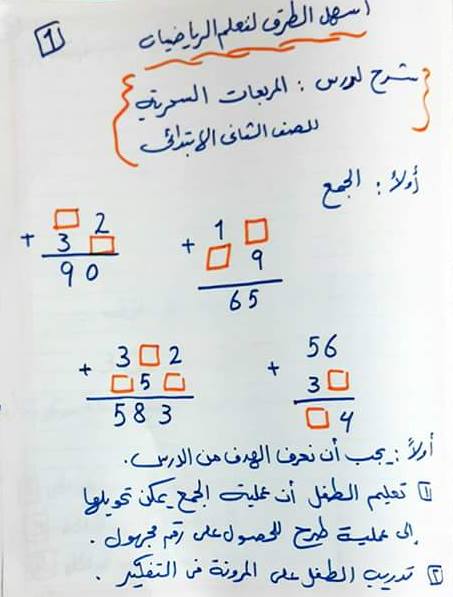 1
أسهل الطرق لتعلم الرياضيات
شرح لدرس : المربعات السحرية
للصف الثانى الابتدائى
أولاً : الجمع
□ 2
+ 3 □
9 0
1 □
+ □ 9
65
3 □ 2
+ □ 5 □
583
56
+ 3 □
□ 4
أولاً : يجب أن نعرف الهدف من الدرس .
1 تعليم الطفل أن عملية الجمع يمكن تحويلها
إلى عملية طرح للحصول على رقم مجهول .
2 تدريب الطفل على المرونة فى التفكير .